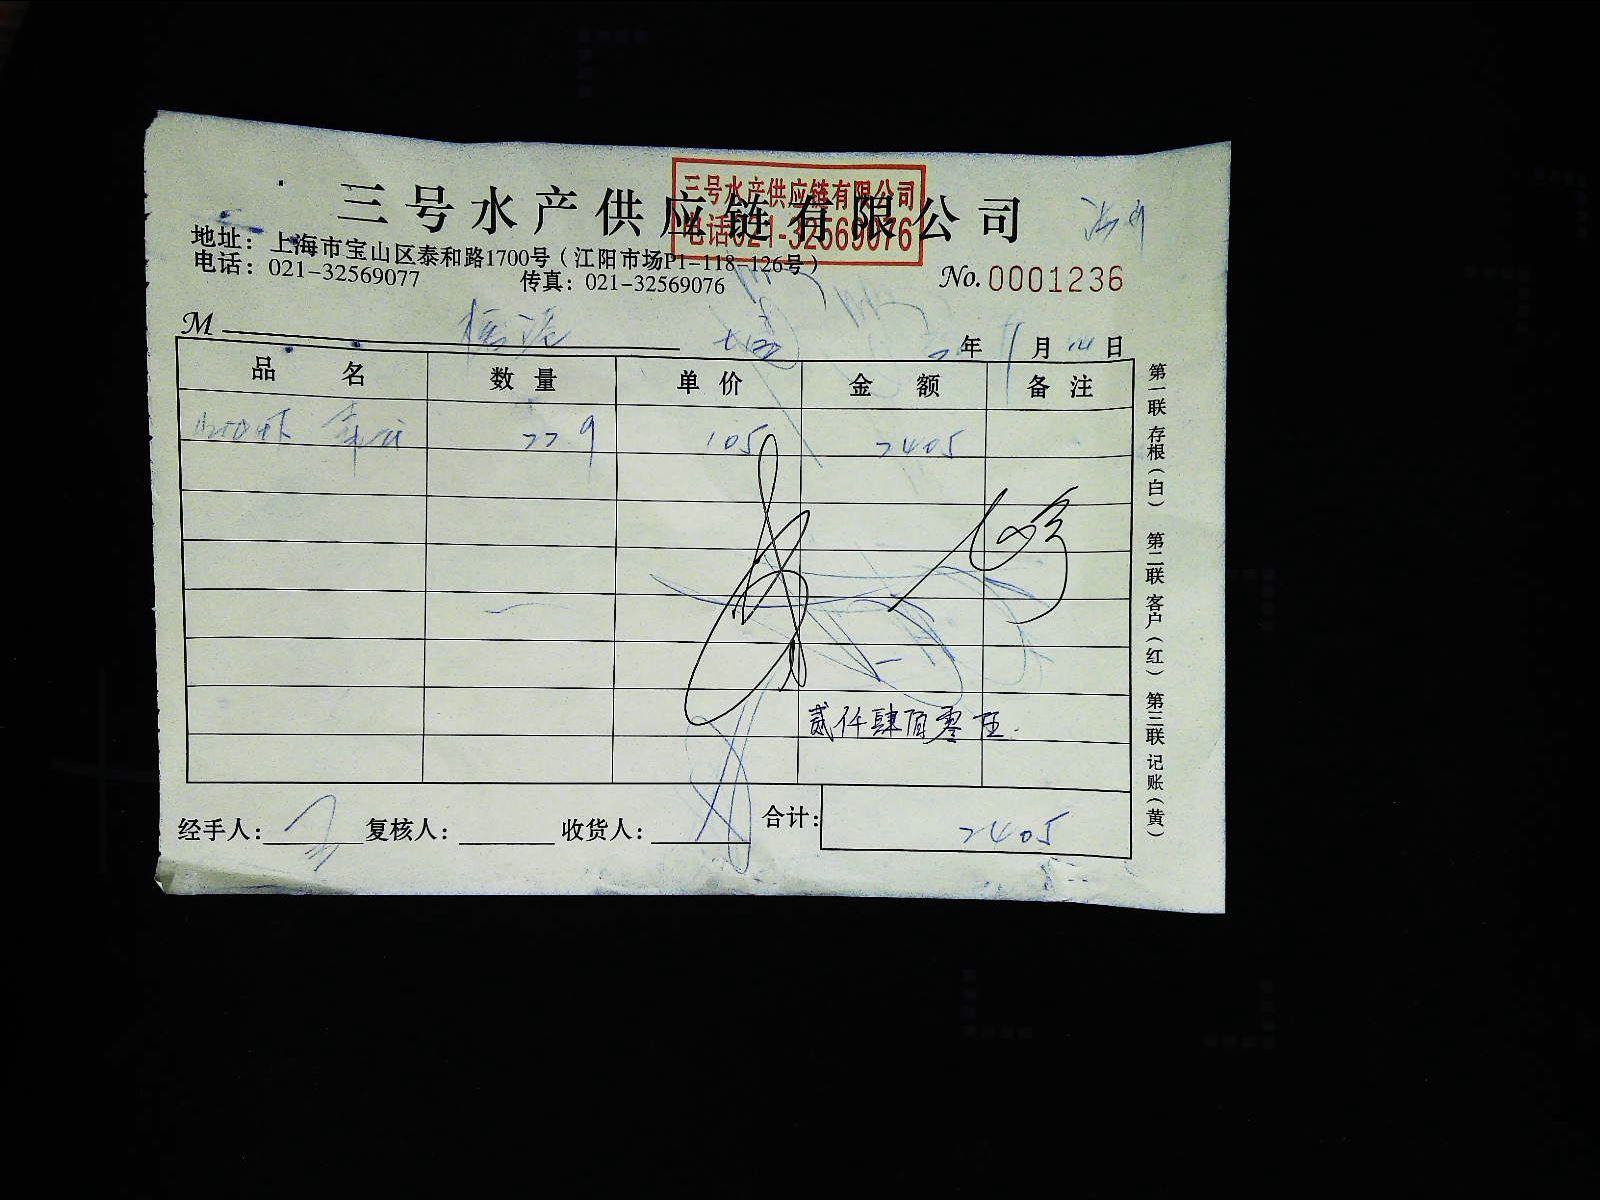 三号水产供应链有限公司
三号水产供应链有限公司
电话021-32569076
地址：上海市宝山区泰和路1700号（江阳市场P1-118-126号）
电话：021-32569077 传真：021-32569076
No.0001236
M
年 月 日
品名 数量 单价 金额 备注
229 105 2405
贰仟肆佰零伍
经手人： 复核人： 收货人： 合计：2405
第一联 存根（白） 第二联 客户（红） 第三联 记账（黄）